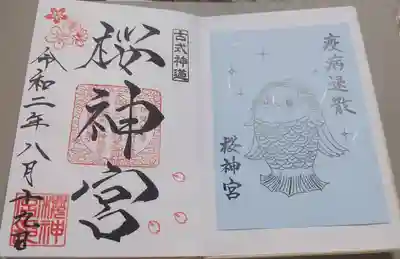 疫病退散
桜神宮
古式神道
桜神宮
令和二年八月十九日